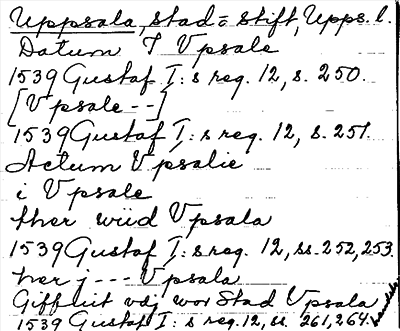 Uppsala, stad = stift, Upps. l.
Datum I Vpsale
1539 Gustaf I:s reg. 12, s. 250.
[Vpsale --]
1539 Gustaf I:s reg. 12, s. 251.
Actum Vpsalie
i Vpsale
ther wiid Vpsala
1539 Gustaf I:s reg. 12, ss. 252, 253.
her j --- Vpsala
Giffuit vdj wor Stad Vpsala
1539 Gustaf I:s reg. 12, ss. 261, 264.